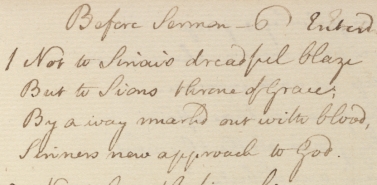 Before Sermon - 6 Enterd
1 Not to Sinai's dreadful blaze
But to Sions throne of Grace;
By a way mark'd out with blood,
Sinners now approach to God.